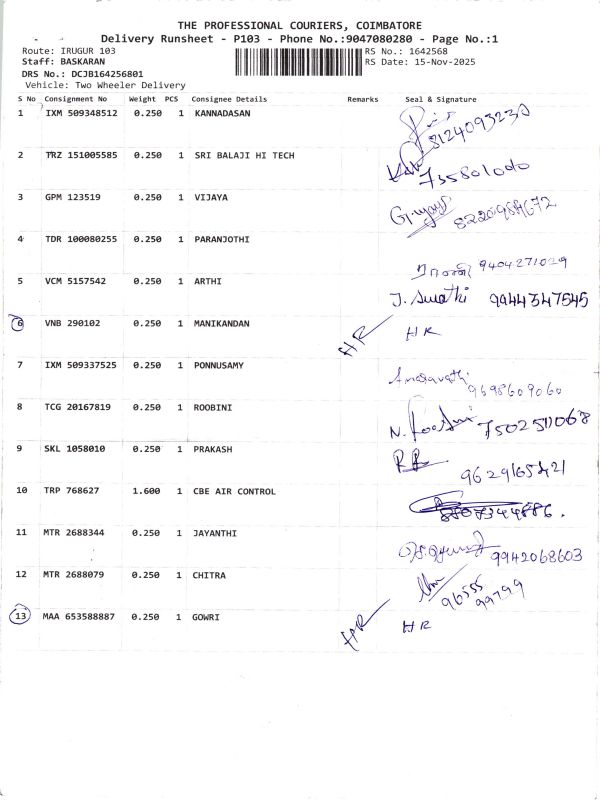 THE PROFESSIONAL COURIERS, COIMBATORE
Delivery Runsheet - P103 - Phone No.:9047080280 - Page No.:1
Route: IRUGUR 103 RS No.: 1642568
Staff: BASKARAN RS Date: 15-Nov-2025
DRS No.: DCJB164256801
Vehicle: Two Wheeler Delivery
S No Consignment No Weight PCS Consignee Details Remarks Seal & Signature
1 IXM 509348512 0.250 1 KANNADASAN 8124093230
2 TRZ 151005585 0.250 1 SRI BALAJI HI TECH 735801000
3 GPM 123519 0.250 1 VIJAYA 8220984672
4 TDR 100080255 0.250 1 PARANJOTHI 9404271029
5 VCM 5157542 0.250 1 ARTHI J. Swathi 9944347545
6 VNB 290102 0.250 1 MANIKANDAN HR HR
7 IXM 509337525 0.250 1 PONNUSAMY 9698609060
8 TCG 20167819 0.250 1 ROOBINI 7502511068
9 SKL 1058010 0.250 1 PRAKASH 9629165421
10 TRP 768627 1.600 1 CBE AIR CONTROL
11 MTR 2688344 0.250 1 JAYANTHI 9942068603
12 MTR 2688079 0.250 1 CHITRA 96555
99799
13 MAA 653588887 0.250 1 GOWRI HR HR